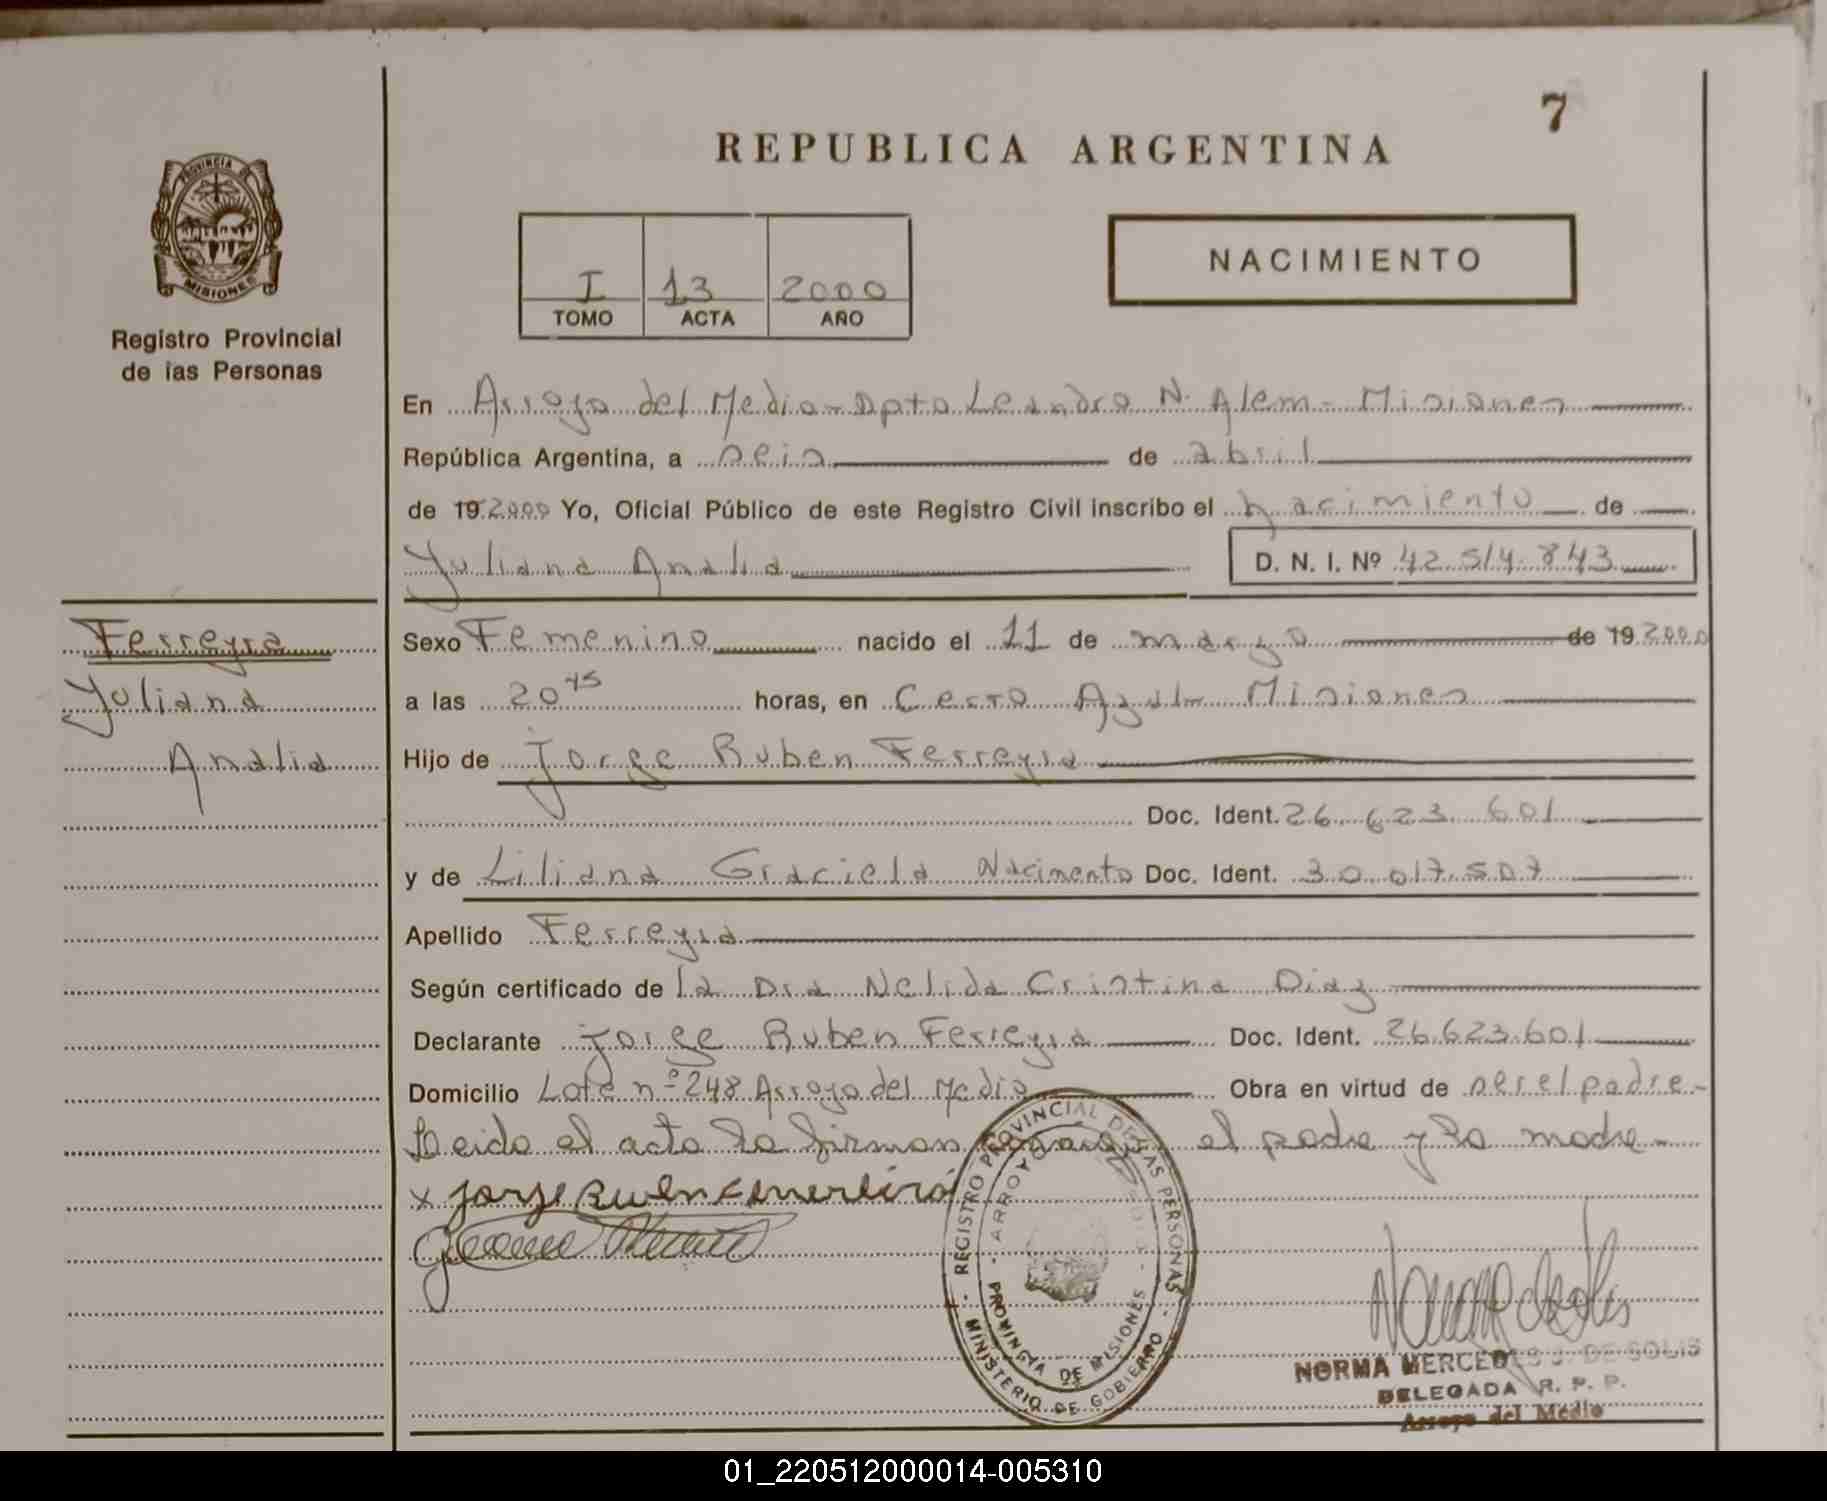 7
REPUBLICA ARGENTINA
PROVINCIA DE MISIONES
Registro Provincial
de las Personas
I 13 2000
TOMO ACTA AÑO
NACIMIENTO
En Arroyo del Medio - Dpto Leandro N. Alem - Misiones
República Argentina, a seis de abril
de 19 2000 Yo, Oficial Público de este Registro Civil inscribo el nacimiento de
Yuliana Analia
D. N. I. Nº 42.514.843
Ferreyra
Yuliana
Analia
Sexo Femenino nacido el 11 de marzo de 19 2000
a las 20 45 horas, en Cerro Azul - Misiones
Hijo de Jorge Ruben Ferreyra
Doc. Ident. 26.623.601
y de Liliana Graciela Nacimento Doc. Ident. 30.017.507
Apellido Ferreyra
Según certificado de la Dra Nelida Cristina Diaz
Declarante Jorge Ruben Ferreyra Doc. Ident. 26.623.601
Domicilio Lote nº 248 Arroyo del Medio Obra en virtud de ser el padre -
Leido el acta la firman conmigo el padre y la madre -
x Jorge Ruben
REGISTRO PROVINCIAL DE LAS PERSONAS
MINISTERIO DE GOBIERNO
ARROYO DEL MEDIO
PROVINCIA DE MISIONES
NORMA MERCEDES J. DE SOLIS
DELEGADA R. P. P.
Arroyo del Medio
01_220512000014-005310